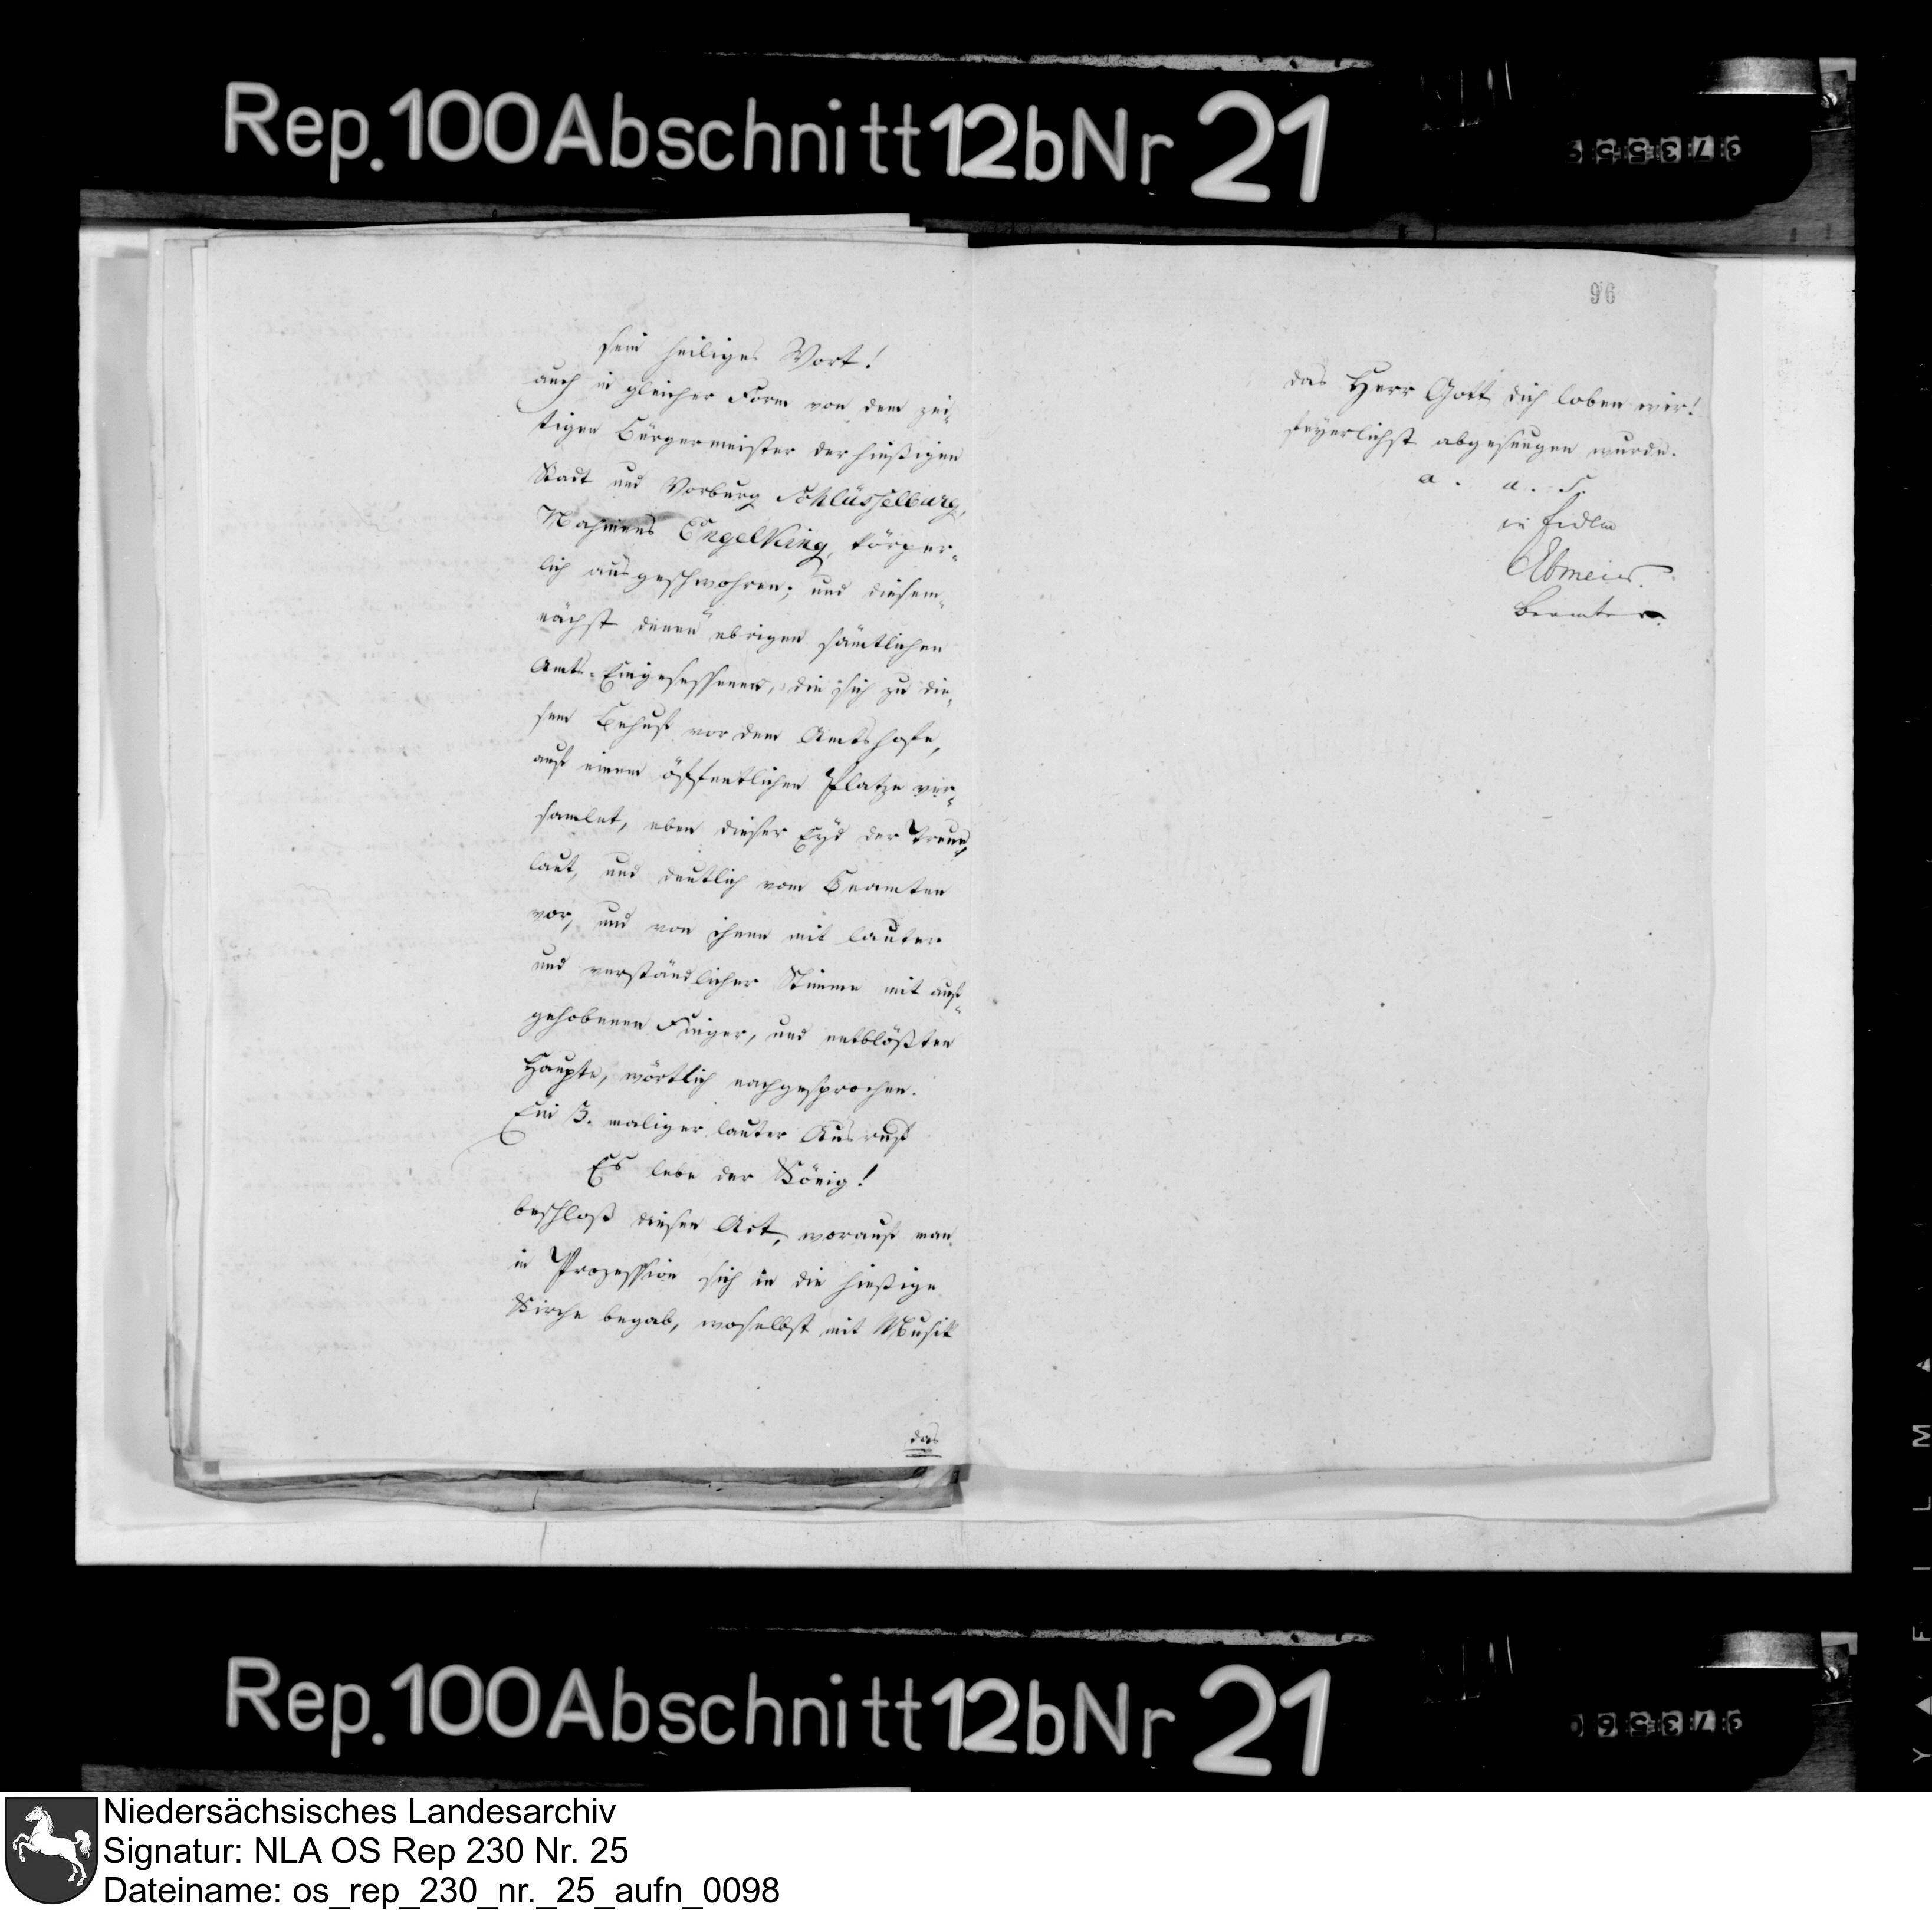 Rep. 100 Abschnitt 12b Nr 21
sein heiliges Wort!
auch in gleicher Form von dem zei-
tigen Bürgermeister der hießigen
Stadt und Vorburg Schlüsselburg,
Nahmens Engelking, körper-
lich ausgeschwohren; und diesem-
nächst denen übrigen sämtlichen
Amts-Eingesessenen, die sich zu die-
sem Behuf vor dem Amtshofe,
auf einem öffentlichen Platze ver-
samlet, eben dieser Eyd der Treue,
laut, und deutlich vom Beamten
vor, und von ihnen mit lauter
und verständlicher Stimme mit auf-
gehobenen Finger, und entblößten
Haupte, wörtlich nachgesprochen.
Ein 3. maliger lauter Ausruf
Es lebe der König!
beschloß diesen Act, worauf man
in Prozession sich in die hießige
Kirche begab, woselbst mit Musik
das
96
das Herr Gott dich loben wir!
feyerlichst abgesungen wurde.
a. u. s.
in fidem
Ebmeier.
Beamter.
Rep. 100 Abschnitt 12b Nr 21
Niedersächsisches Landesarchiv
Signatur: NLA OS Rep 230 Nr. 25
Dateiname: os_rep_230_nr._25_aufn_0098